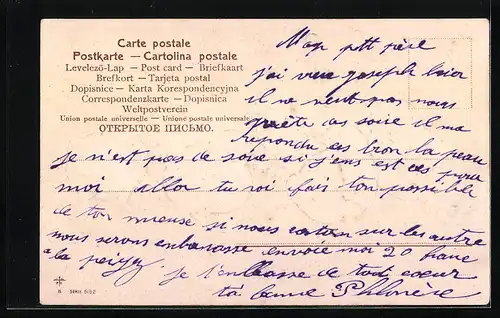 Carte postale
Postkarte — Cartolina postale
Levelező-Lap — Post card — Briefkaart
Brefkort — Tarjeta postal
Dopisnice — Karta Korespondencyjna
Correspondenzkarte — Dopisnica
Weltpostverein
Union postale universelle — Unione postale universale
ОТКРЫТОЕ ПИСЬМО.
ptt père
j'ai vue joseph hier
il ne veut pas nous
ces soire il ma
repondu la peau
je n'est pas de soue si j'ens est ces pour
moi allor tu voi fais ton possible
de ton mieuse si nous conton sur les autre
nous serons enbarasse envoie moi 20 franc
a la
je t'enbrasse de tout coeur
ta